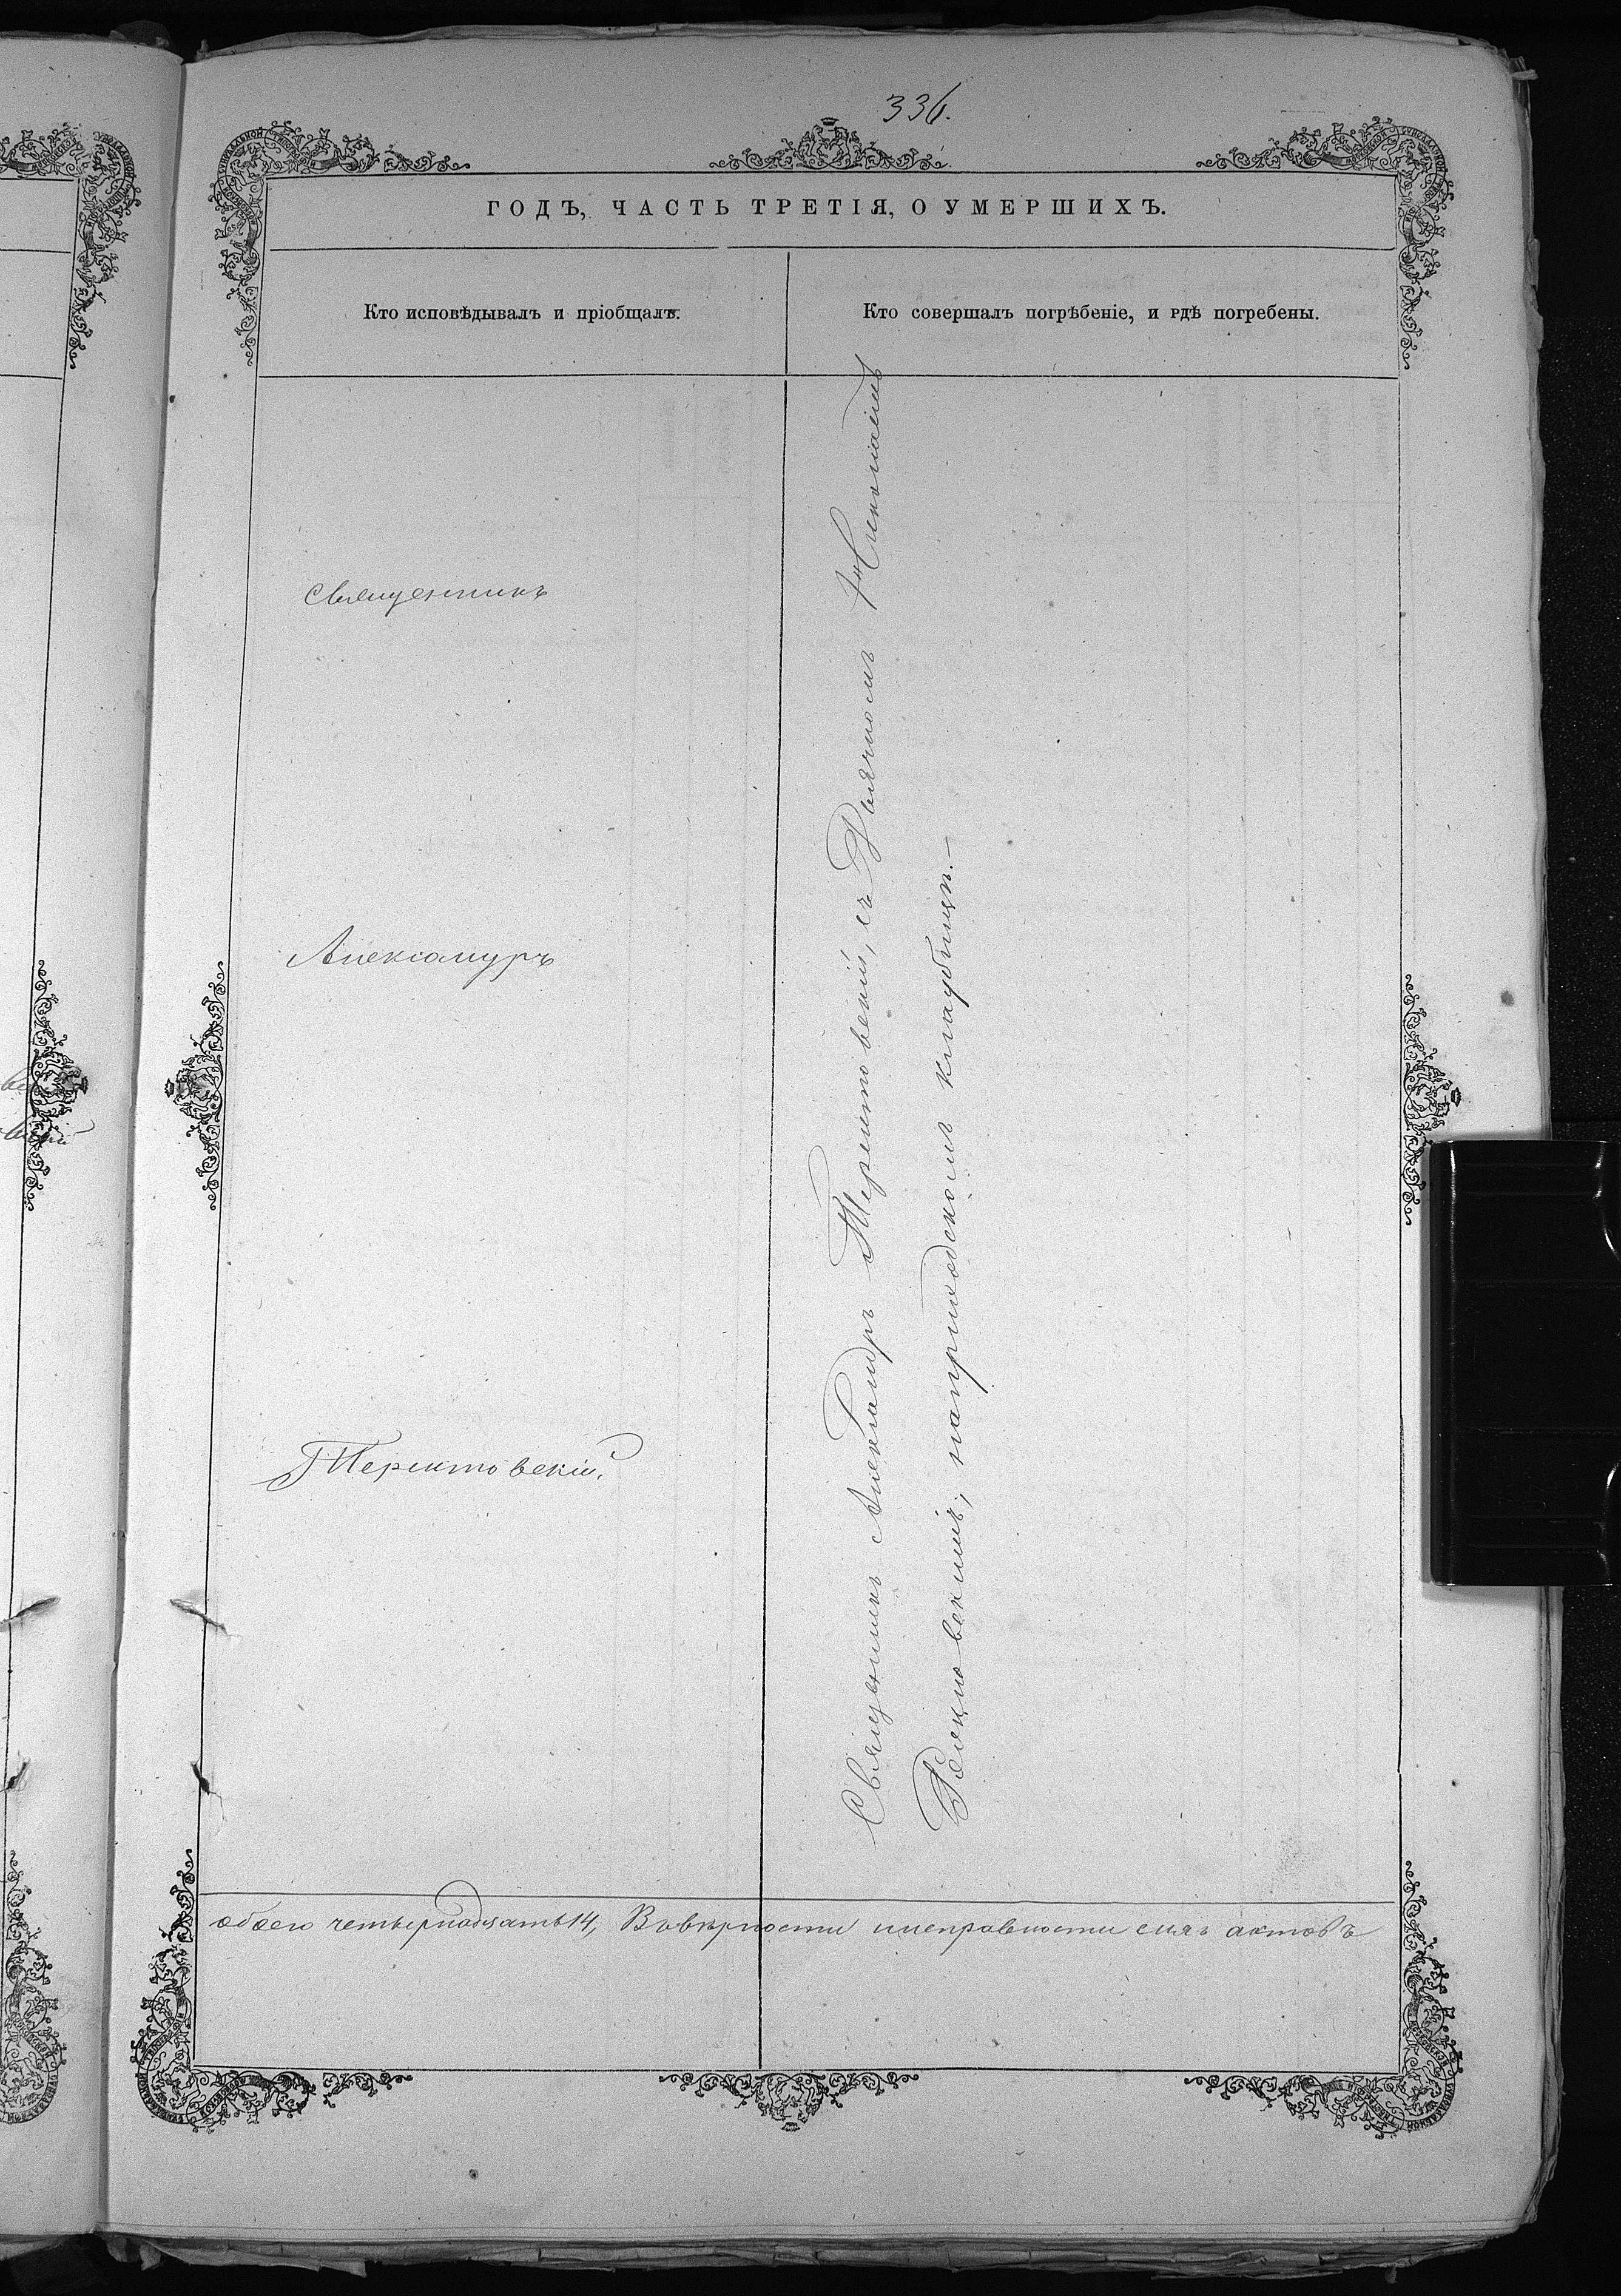 336.
ГОДЪ, ЧАСТЬ ТРЕТІЯ, О УМЕРШИХЪ.
Кто исповѣдывалъ и пріобщалъ.
Кто совершалъ погрѣбеніе, и гдѣ погребены.
Священникъ
Александръ
Священникъ Александръ съ Дьячкомъ
на приходскомъ кладбищѣ.—
обоего четырнадцать 14, Въ вѣрности и исправности сихъ актовъ